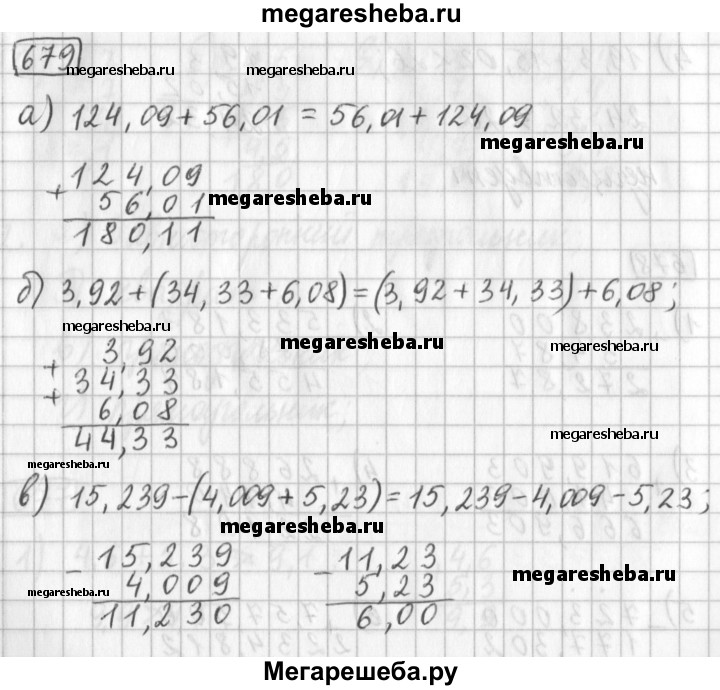 megaresheba.ru
679
megaresheba.ru megaresheba.ru
а) 124,09 + 56,01 = 56,01 + 124,09
megaresheba.ru
+ 124,09
56,01 megaresheba.ru
180,11
б) 3,92 + (34,33 + 6,08) = (3,92 + 34,33) + 6,08;
megaresheba.ru megaresheba.ru megaresheba.ru
+ 3,92
+ 34,33
6,08
44,33 megaresheba.ru
megaresheba.ru
в) 15,239 - (4,009 + 5,23) = 15,239 - 4,009 - 5,23;
megaresheba.ru
- 15,239 - 11,23
megaresheba.ru 4,009 5,23 megaresheba.ru
11,230 6,00
Мегарешеба.ру